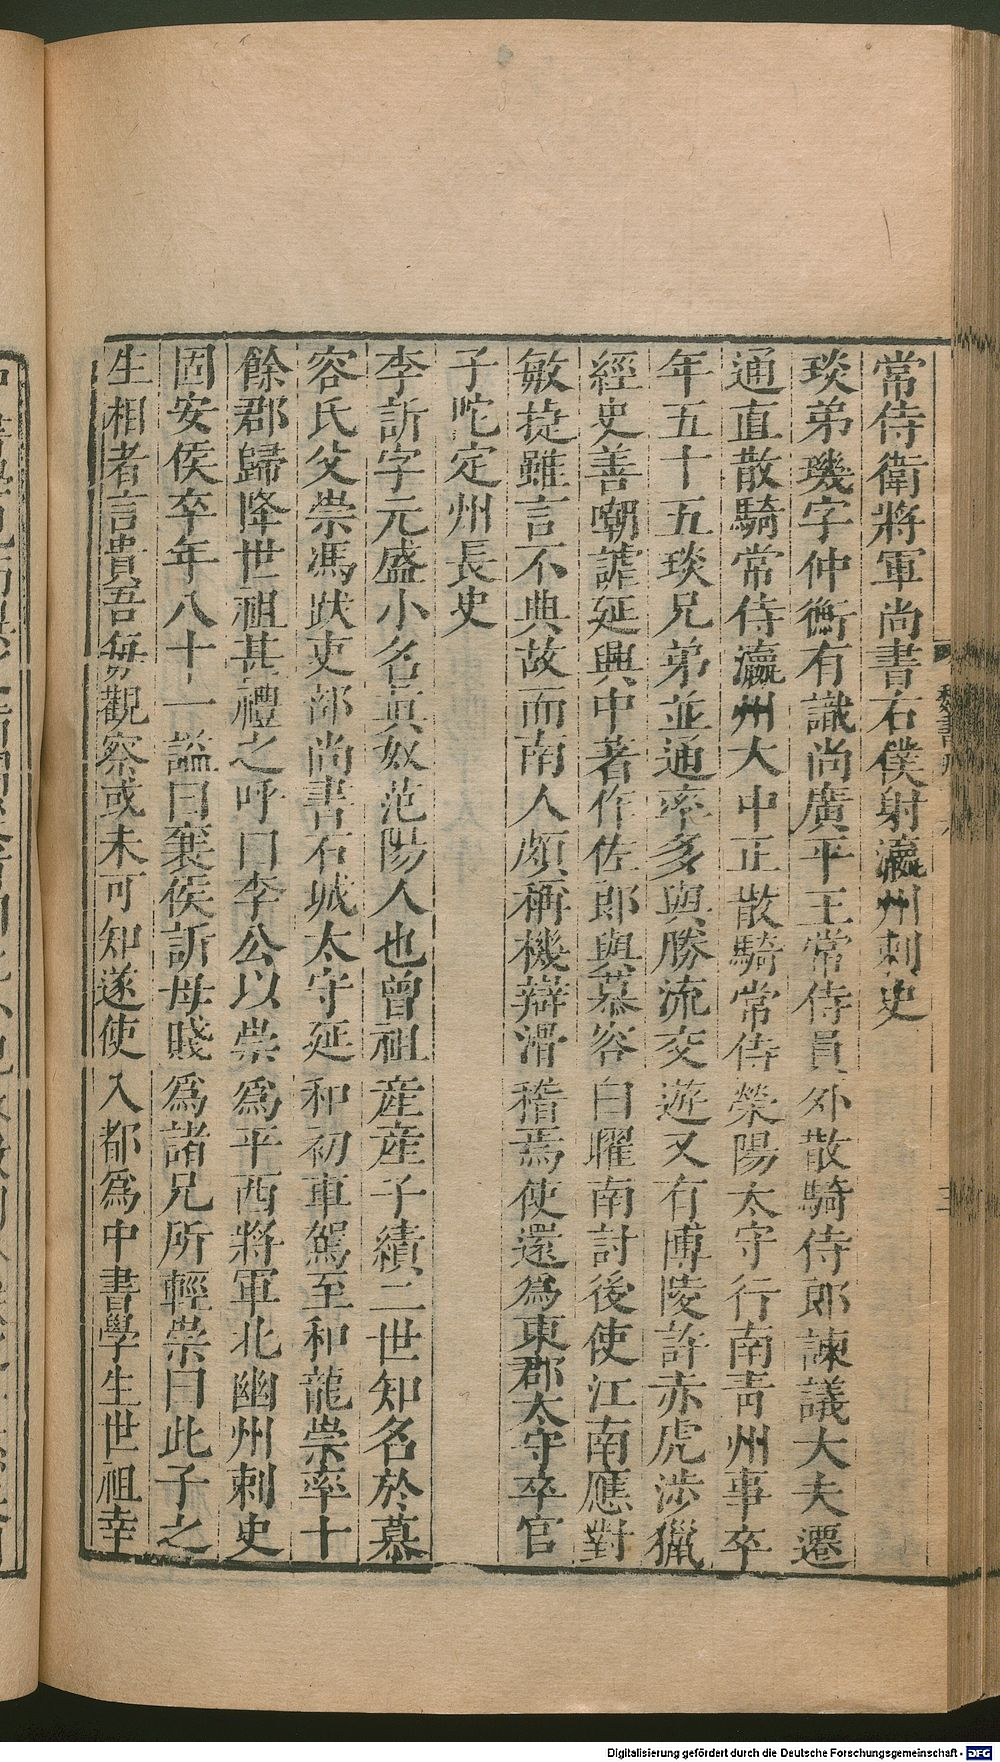 常侍衛將軍尚書右僕射瀛州刺史
琰弟璣字仲衡有識尚廣平王常侍員外散騎侍郎諫議大夫遷
通直散騎常侍瀛州大中正散騎常侍滎陽太守行南青州事卒
年五十五琰兄弟並通率多與勝流交遊又有博陵許赤虎涉獵
經史善嘲謔延興中著作佐郎與慕容白曜南討後使江南應對
敏捷雖言不典故而南人頗稱機辯滑稽焉使還為東郡太守卒官
子陀定州長史
李訢字元盛小名真奴范陽人也曾祖産産子績二世知名於慕
容氏父崇馮跋吏部尚書石城太守延和初車駕至和龍崇率十
餘郡歸降世祖甚禮之呼曰李公以崇為平西將軍北幽州刺史
固安侯卒年八十一謚曰襄侯訢母賤為諸兄所輕崇曰此子之
生相者言貴吾每觀察或未可知遂使入都為中書學生世祖幸
Digitalisierung gefördert durch die Deutsche Forschungsgemeinschaft - DFG